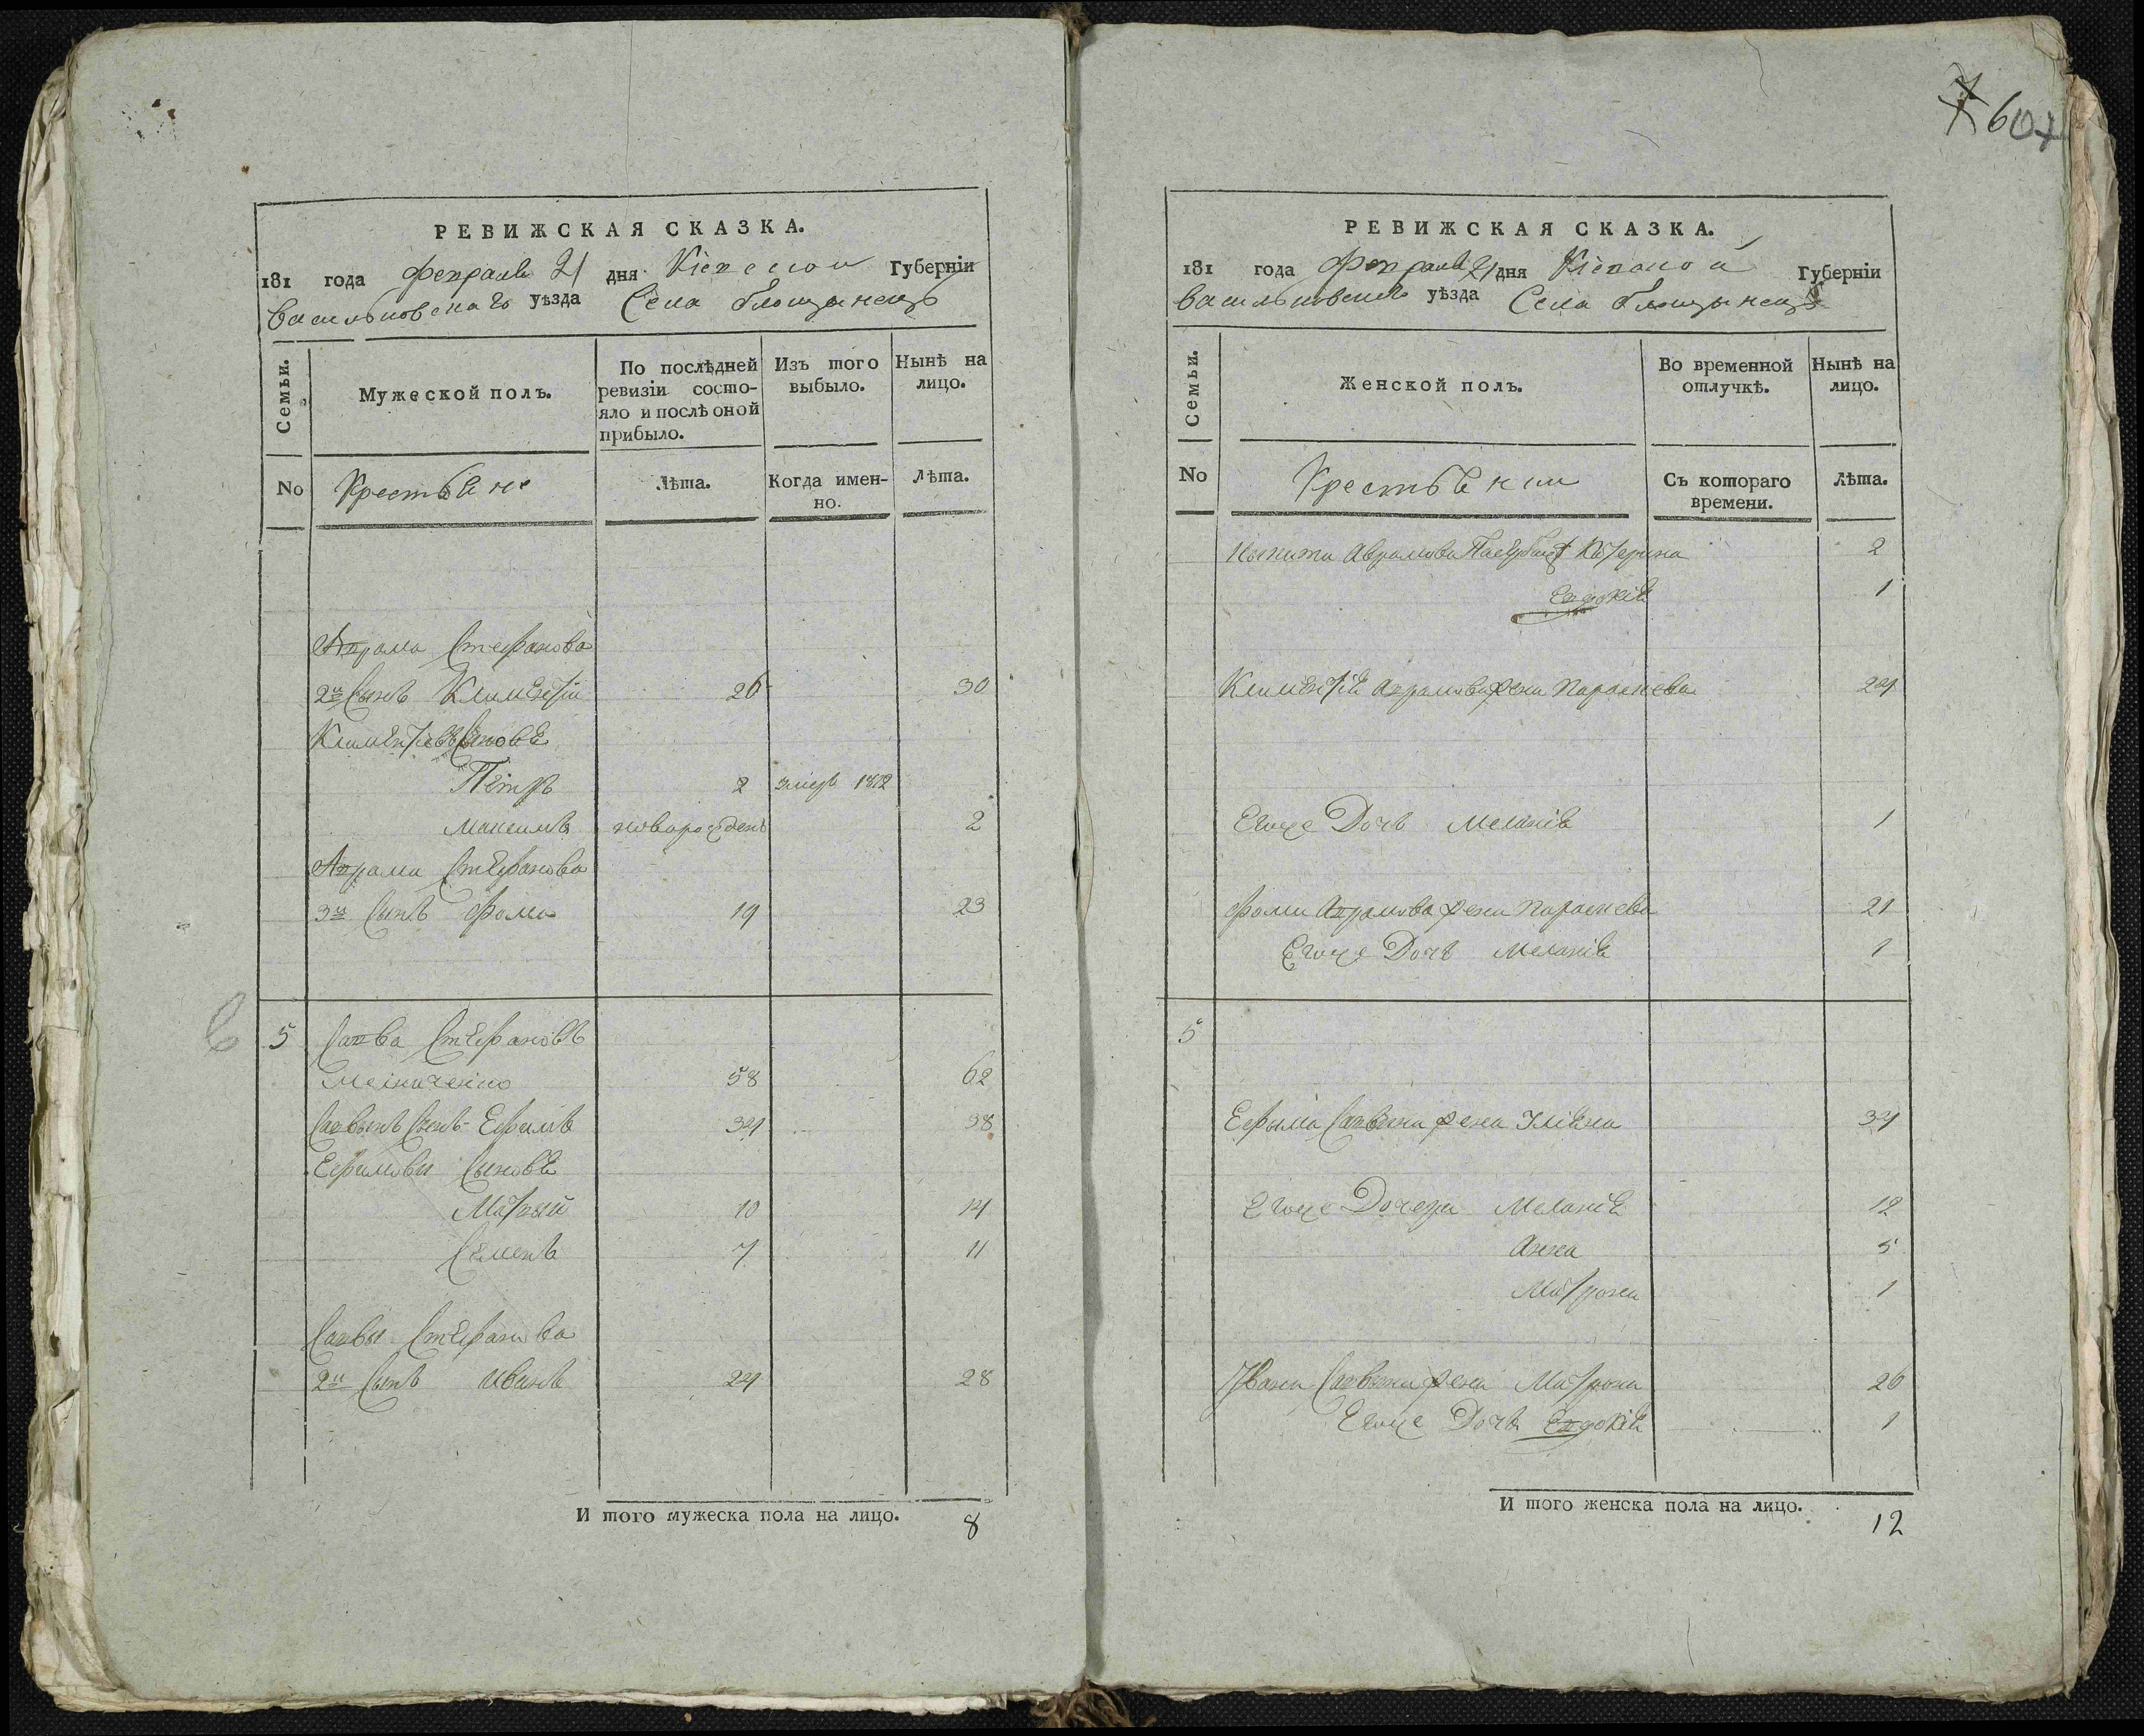 РЕВИЖСКАЯ СКАЗКА.
181 года февраля 21 дня Кіевской Губерніи
Васильковскаго уѣзда Села Блощынецъ
Семьи.
Мужеской полъ.
По послѣдней ревизіи состояло и послѣ оной прибыло.
Изъ того выбыло.
Нынѣ на лицо.
No Крестьяне Лѣта. Когда именно. Лѣта.
Аврама Стефанова
2й Сынъ Климентій 26 30
Климентіевы Сыновя
Петръ 2 змеръ 1812
Максимъ новорожденъ 2
Аврама Стефанова
3й Сынъ Фома 19 23
5 Савва Стефановъ
58 62
Саввынъ Сынъ Ефимъ 34 38
Ефимовы Сыновя
Матвый 10 14
Семенъ 7 11
Саввы Стефанова
2й Сынъ Иванъ 24 28
И того мужеска пола на лицо. 8
607
РЕВИЖСКАЯ СКАЗКА.
181 года февраля 21 дня Кіевской Губерніи
Васильковскаго уѣзда Села Блощынецъ
Семьи.
Женской полъ.
Во временной отлучкѣ.
Нынѣ на лицо.
No Крестьянки Съ котораго времени. Лѣта.
Мыкиты Аврамова Катерина 2
Евдокія 1
Климентія Аврамова жена Параскева 24
Егоже Дочь Меланія 1
Фомы Аврамова жена Параскева 21
Егоже Дочь Меланія 1
5
Ефыма Саввина жена 34
Егоже Дочеры Меланія 12
Анна 5
Матрона 1
Ивана Саввина жена Матрона 26
Егоже Дочь Евдокія 1
И того женска пола на лицо. 12